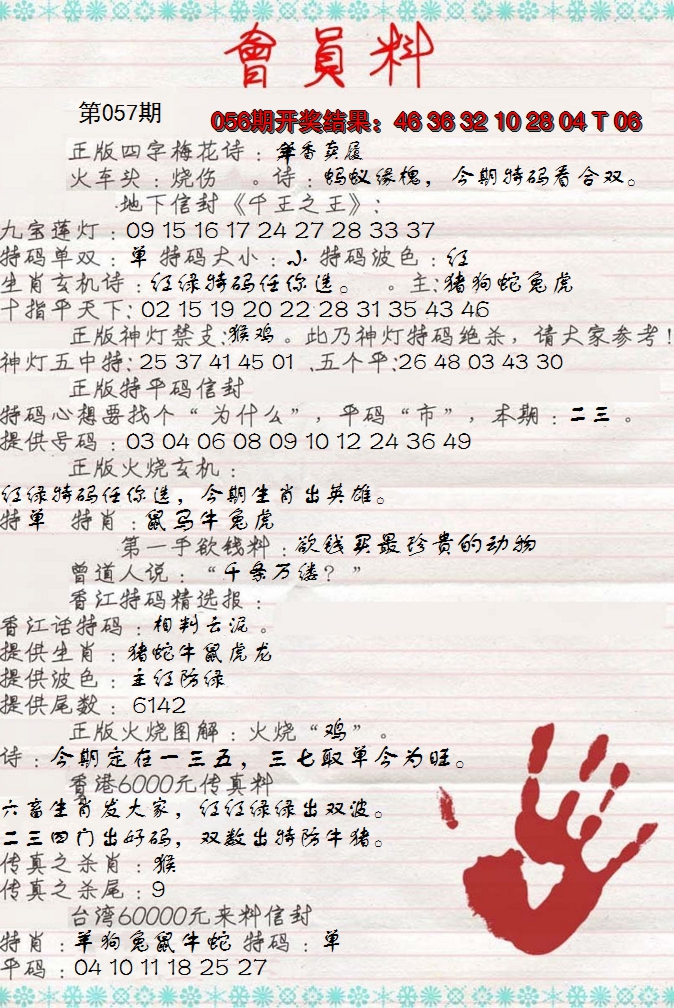 會員料
第057期
056期开奖结果：46 36 32 10 28 04 T 06
正版四字梅花诗：香卖履
火车头：烧伤 。诗：蚂蚁缘槐，今期特码看合双。
地下信封《千王之王》:
九宝莲灯：09 15 16 17 24 27 28 33 37
特码单双：单 特码大小：小 特码波色：红
生肖玄机诗：红绿特码任你选。 。主:猪狗蛇兔虎
十指平天下: 02 15 19 20 22 28 31 35 43 46
正版神灯禁支:猴鸡。此乃神灯特码绝杀，请大家参考!
神灯五中特:25 37 41 45 01 、五个平:26 48 03 43 30
正版特平码信封
特码心想要找个“为什么”，平码“市”，本期：二三 。
提供号码：03 04 06 08 09 10 12 24 36 49
正版火烧玄机：
红绿特码任你选，今期生肖出英雄。
特单 特肖：鼠马牛兔虎
第一手欲钱料：欲钱买最珍贵的动物
曾道人说：“千条万缕？”
香江特码精选报：
香江话特码：相判云泥。
提供生肖：猪蛇牛鼠虎龙
提供波色：主红防绿
提供尾数：6142
正版火烧图解：火烧“鸡”。
诗：今期定在一三五，三七取单今为旺。
香港6000元传真料
六畜生肖发大家，红红绿绿出双波。
二三四门出好码，双数出特防牛猪。
传真之杀肖：猴
传真之杀尾：9
台湾60000元来料信封
特肖：羊狗兔鼠牛蛇 特码：单
平码：04 10 11 18 25 27